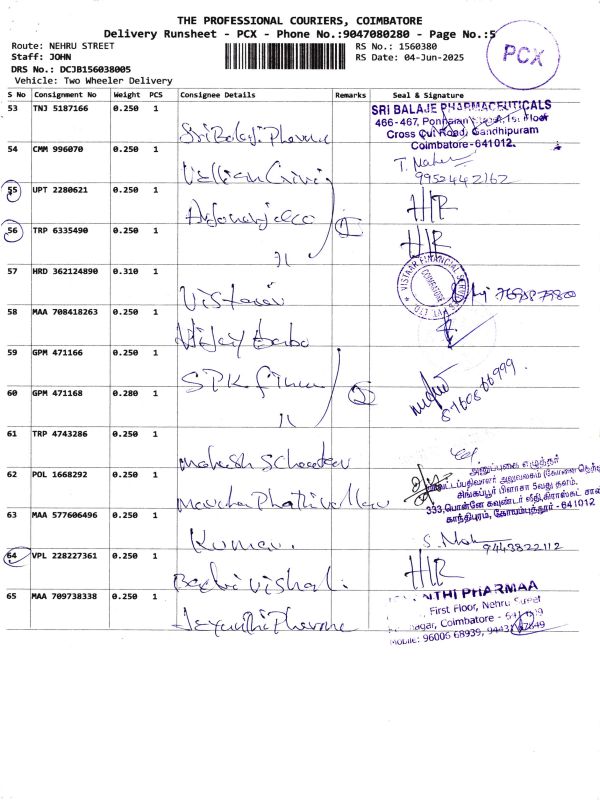 THE PROFESSIONAL COURIERS, COIMBATORE
Delivery Runsheet - PCX - Phone No.:9047080280 - Page No.:5
Route: NEHRU STREET
RS No.: 1560380
Staff: JOHN
RS Date: 04-Jun-2025
PCX
DRS No.: DCJB156038005
Vehicle: Two Wheeler Delivery
S No Consignment No Weight PCS Consignee Details Remarks Seal & Signature
53 TNJ 5187166 0.250 1
Sri Balaji Pharma
SRI BALAJE PHARMACEUTICALS
466-467, Ponnaran Floor
Cross Cut Road, Gandhipuram
Coimbatore-641012.
54 CMM 996070 0.250 1
9952442162
55 UPT 2280621 0.250 1
H/R
56 TRP 6335490 0.250 1
1
H/R
57 HRD 362124890 0.310 1
Vistaar
VISTAAR FINANCIAL
COIMBATORE
58 MAA 708418263 0.250 1
Vijay
59 GPM 471166 0.250 1
SPK
60 GPM 471168 0.280 1
2
61 TRP 4743286 0.250 1
Mahesh
அனுப்புகை எழுத்தர்
62 POL 1668292 0.250 1
சிங்கப்பூர் பிளாசா 5வது தளம்.
333,பொன்னே கவுண்டர் வீதி,கிராஸ்கட்
காந்திபுரம், கோயம்புத்தூர் - 641012
63 MAA 577606496 0.250 1
Kumar.
9443822112
64 VPL 228227361 0.250 1
H/R
65 MAA 709738338 0.250 1
Jeyanthi Pharma
NTHI PHARMAA
First Floor, Nehru Street
nagar, Coimbatore -
Mobile: 96006 68939,